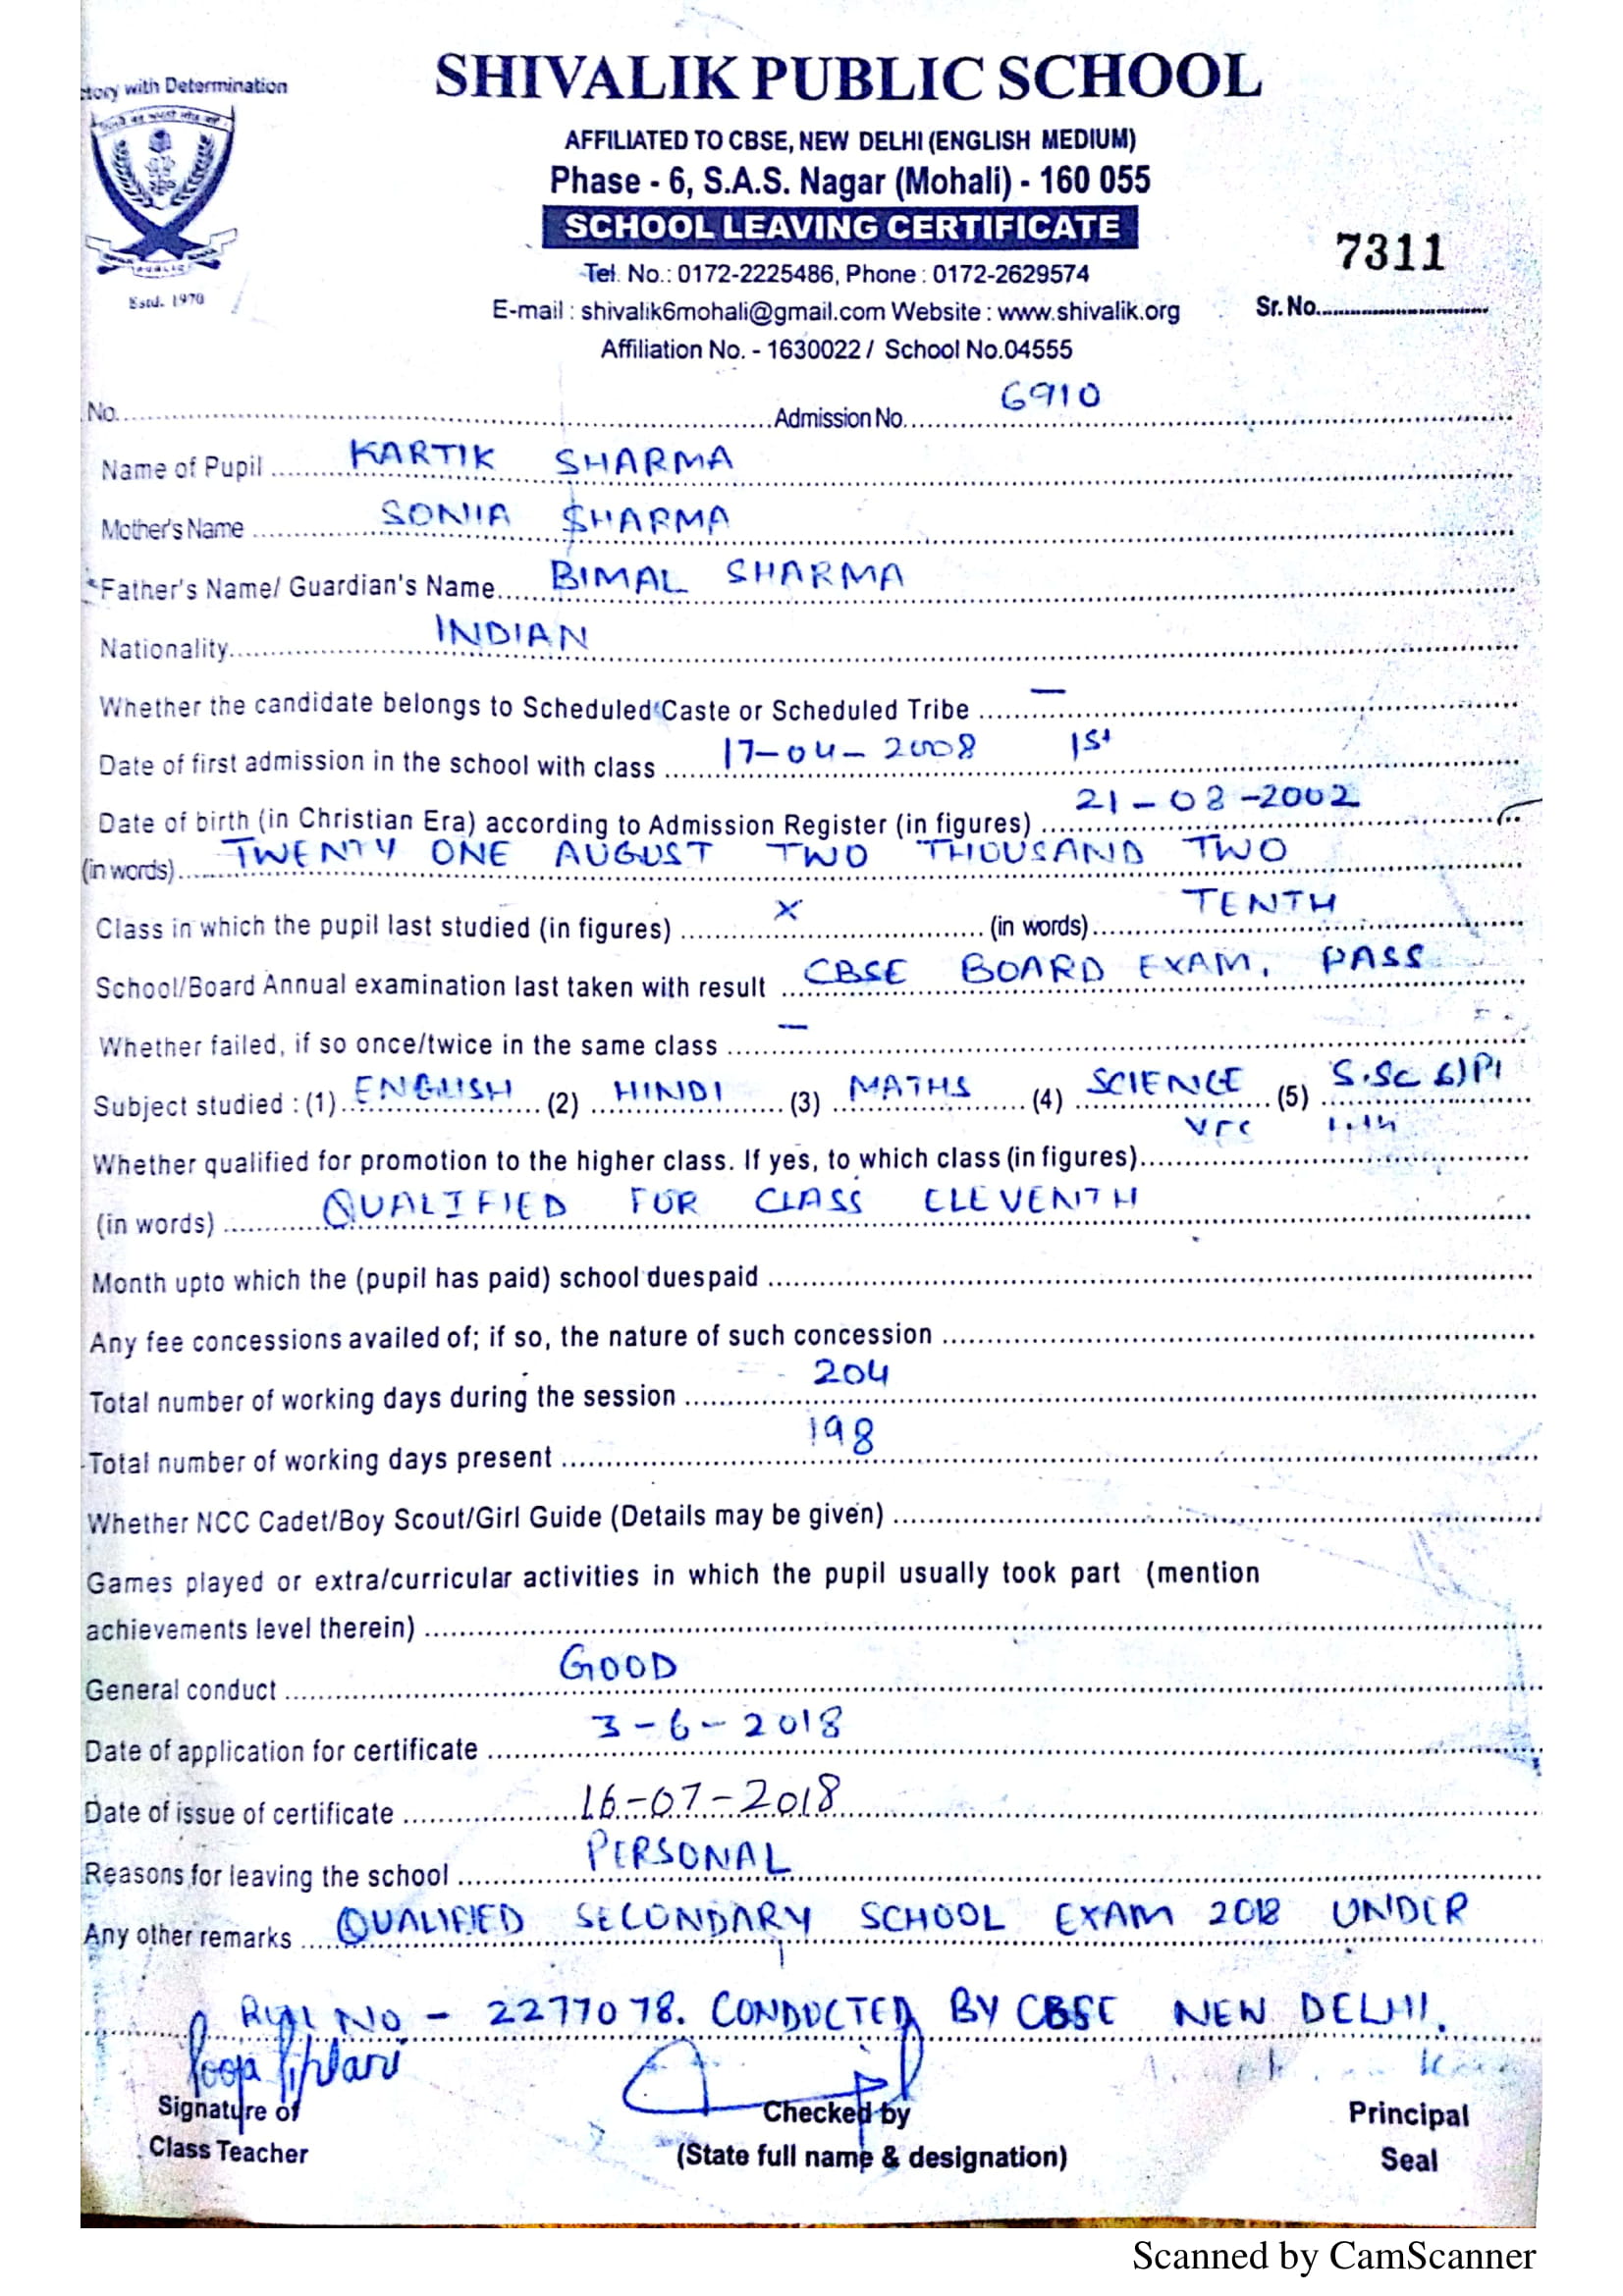 tory with Determination
SHIVALIK PUBLIC SCHOOL
AFFILIATED TO CBSE, NEW DELHI (ENGLISH MEDIUM)
Phase - 6, S.A.S. Nagar (Mohali) - 160 055
SCHOOL LEAVING CERTIFICATE
7311
Tel. No.: 0172-2225486, Phone : 0172-2629574
PUBLIC
Estd. 1970
E-mail : shivalik6mohali@gmail.com Website : www.shivalik.org
Sr. No.
Affiliation No. - 1630022 / School No.04555
No. Admission No. 6910
Name of Pupil KARTIK SHARMA
Mother's Name SONIA SHARMA
Father's Name/ Guardian's Name BIMAL SHARMA
Nationality INDIAN
Whether the candidate belongs to Scheduled Caste or Scheduled Tribe —
Date of first admission in the school with class 17-04-2008 1st
Date of birth (in Christian Era) according to Admission Register (in figures) 21-08-2002
(in words) TWENTY ONE AUGUST TWO THOUSAND TWO
Class in which the pupil last studied (in figures) X (in words) TENTH
School/Board Annual examination last taken with result CBSE BOARD EXAM. PASS
Whether failed, if so once/twice in the same class —
Subject studied : (1) ENGLISH (2) HINDI (3) MATHS (4) SCIENCE (5) S.Sc 6)
Whether qualified for promotion to the higher class. If yes, to which class (in figures)
(in words) QUALIFIED FOR CLASS ELEVENTH
Month upto which the (pupil has paid) school duespaid
Any fee concessions availed of; if so, the nature of such concession
Total number of working days during the session 204
Total number of working days present 198
Whether NCC Cadet/Boy Scout/Girl Guide (Details may be given)
Games played or extra/curricular activities in which the pupil usually took part (mention
achievements level therein)
General conduct GOOD
Date of application for certificate 3-6-2018
Date of issue of certificate 16-07-2018
Reasons for leaving the school PERSONAL
Any other remarks QUALIFIED SECONDARY SCHOOL EXAM 2018 UNDER
ROLL NO. - 2277078. CONDUCTED BY CBSE NEW DELHI.
Signature of
Class Teacher
Checked by
(State full name & designation)
Principal
Seal
Scanned by CamScanner